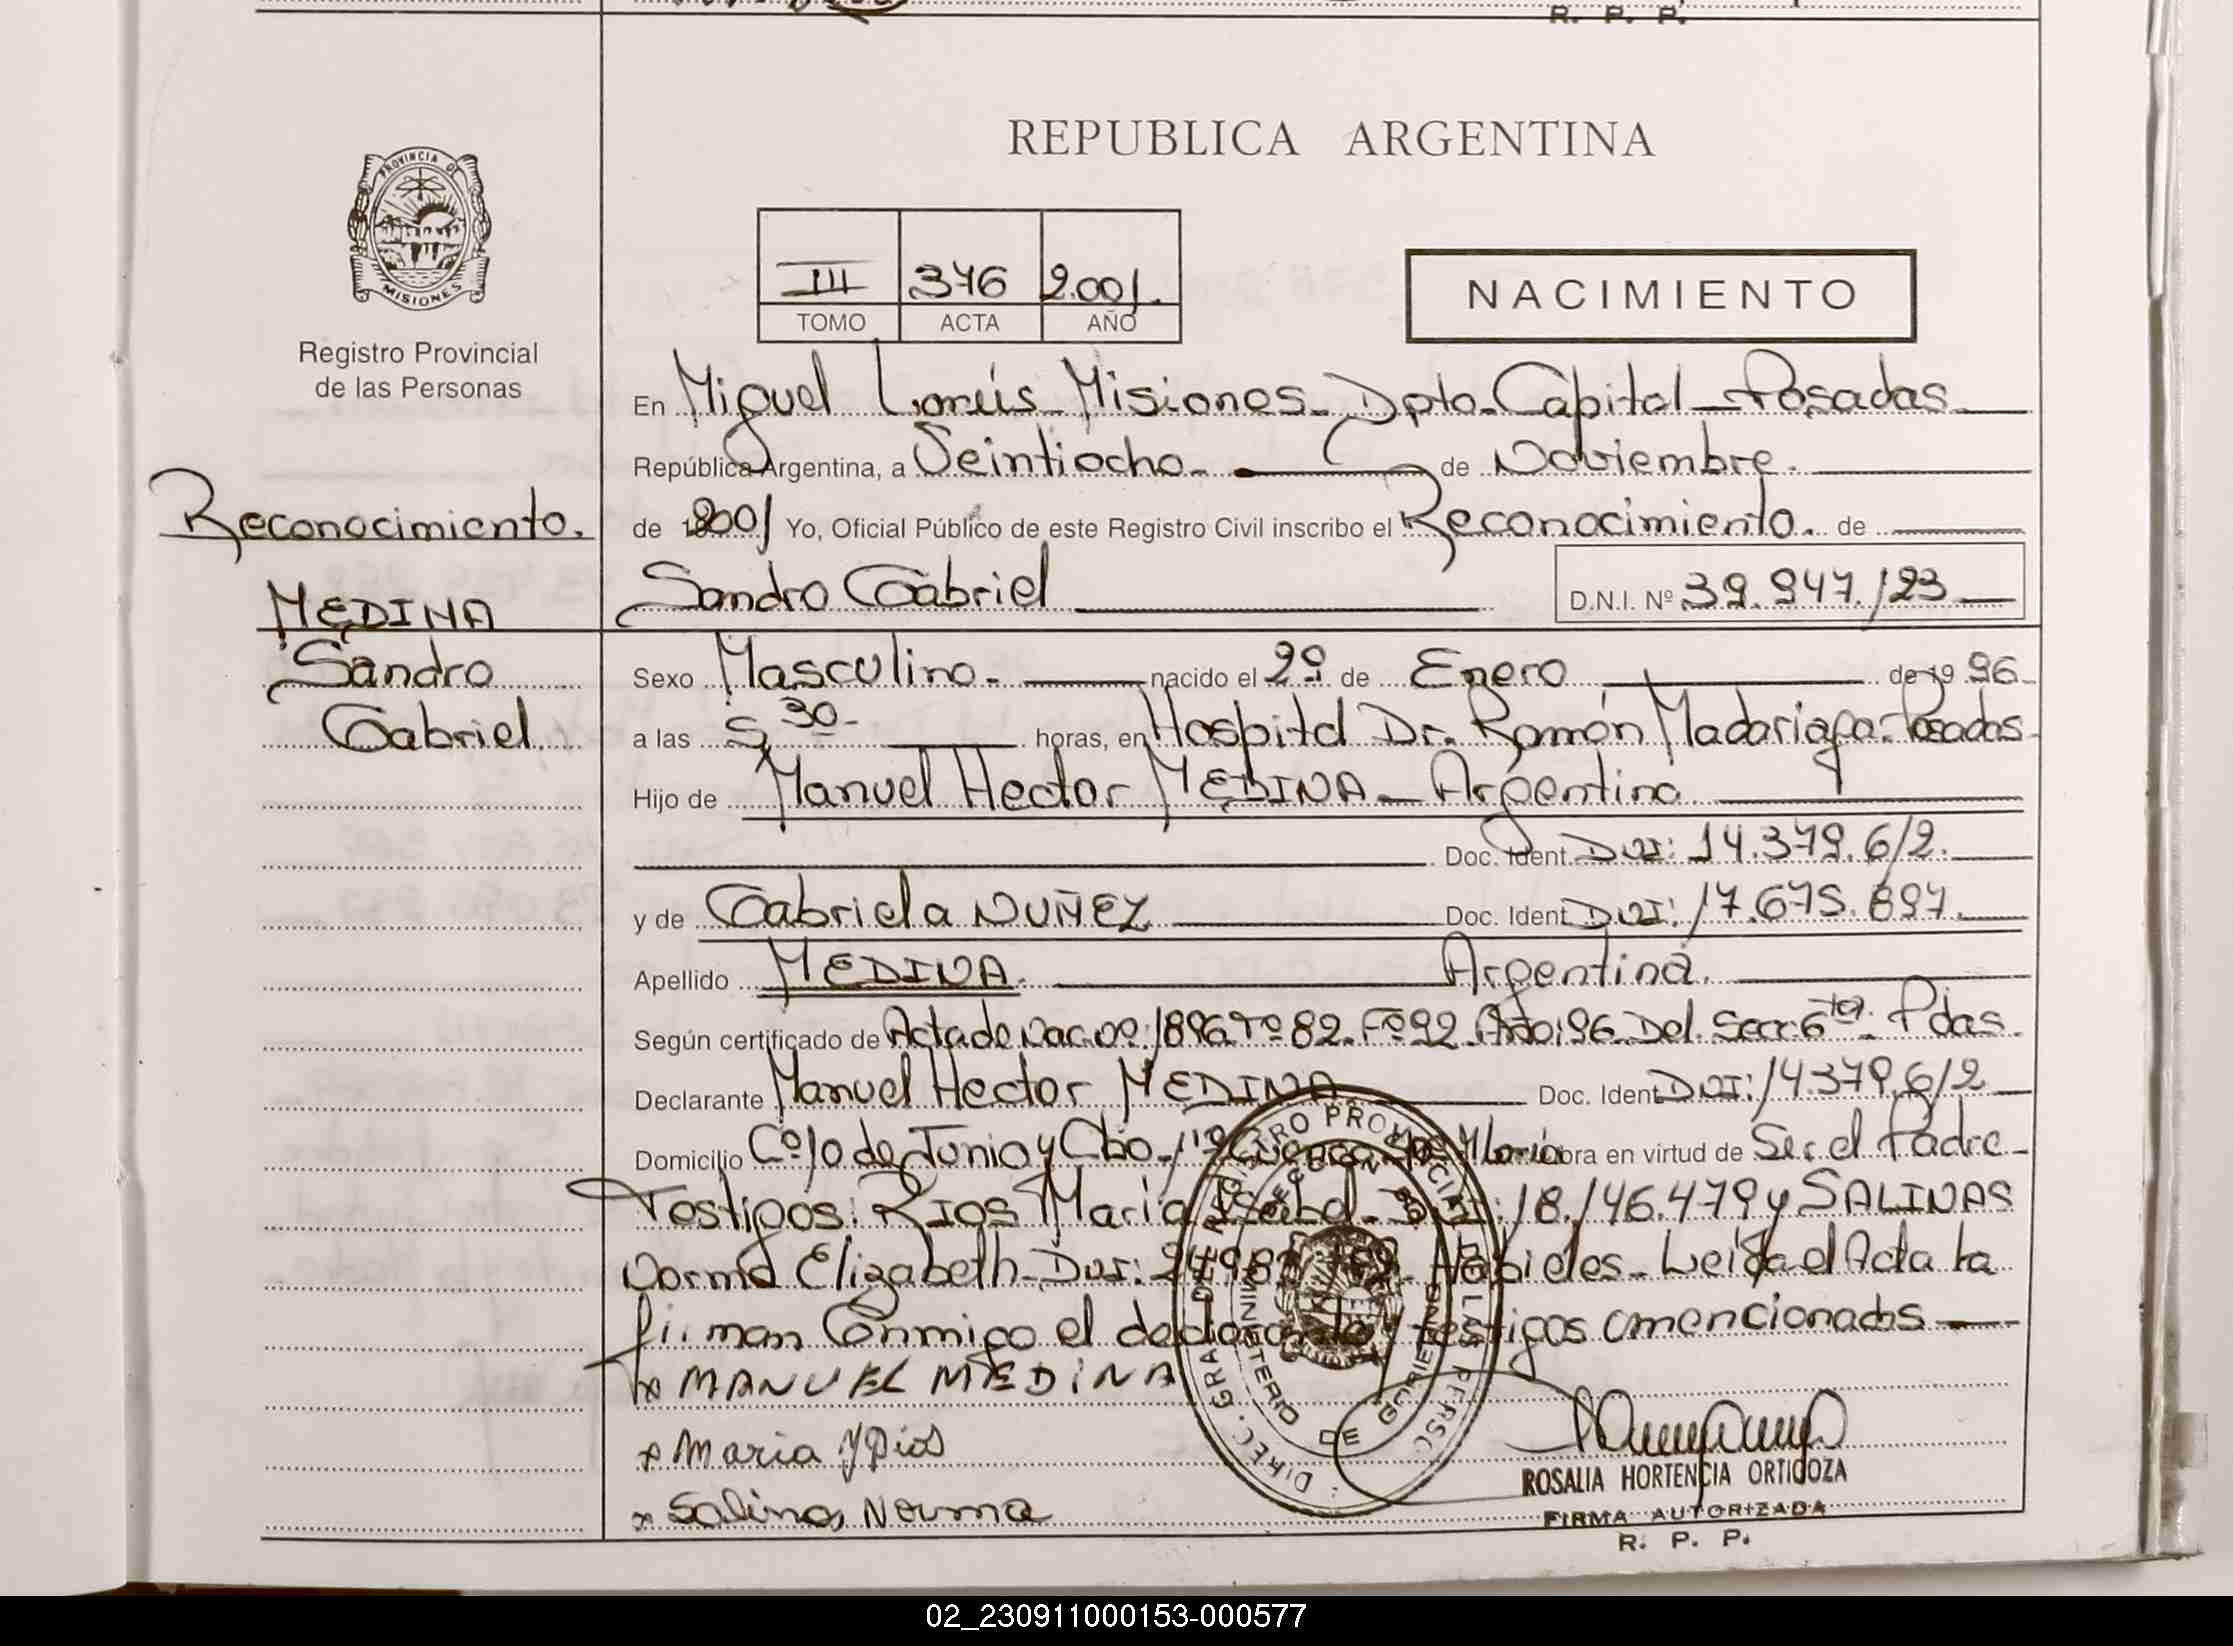 R. P. P.
REPUBLICA ARGENTINA
PROVINCIA DE
MISIONES
Registro Provincial
de las Personas
III 376 2.001.
TOMO ACTA AÑO
NACIMIENTO
En Miguel Lanús - Misiones - Dpto - Capital - Posadas
República Argentina, a Veintiocho - de Noviembre.
de 2001 Yo, Oficial Público de este Registro Civil inscribo el Reconocimiento. de
Sandro Gabriel D.N.I. Nº 39.947.123
Reconocimiento.
MEDINA
Sandro
Gabriel
Sexo Masculino. - nacido el 29 de Enero de 19 96
a las 5 30 - horas, en Hospital Dr. Ramón Madariaga - Posadas
Hijo de Manuel Hector MEDINA - Argentino
Doc. Ident. DNI: 14.379.612.
y de Gabriela NUÑEZ Doc. Ident DNI: 17.675.897.
Apellido MEDINA. Argentina.
Según certificado de Acta de Nac. Nº: 1896 Tº 82. Fº 92 Año: 96 Del. Secc. 6ta. Pdas.
Declarante Manuel Hector MEDINA Doc. Ident DNI: 14.379.612
Domicilio Cº 10 de Junio y Cbo. 1º obra en virtud de Ser el Padre -
Testigos: RIOS Maria Isabel - DNI: 18.146.479 y SALINAS
Norma Elizabeth - DNI: Habieles - Leída el Acta la
firman Conmigo el declarante y testigos amencionados
x MANUEL MEDINA
x Maria Y Rios
x Salinas Norma
DIREC. GRAL. REGISTRO PROVINCIAL DE LAS PERSONAS
MINISTERIO DE GOBIERNO
ROSALIA HORTENCIA ORTIGOZA
FIRMA AUTORIZADA
R. P. P.
02_230911000153-000577